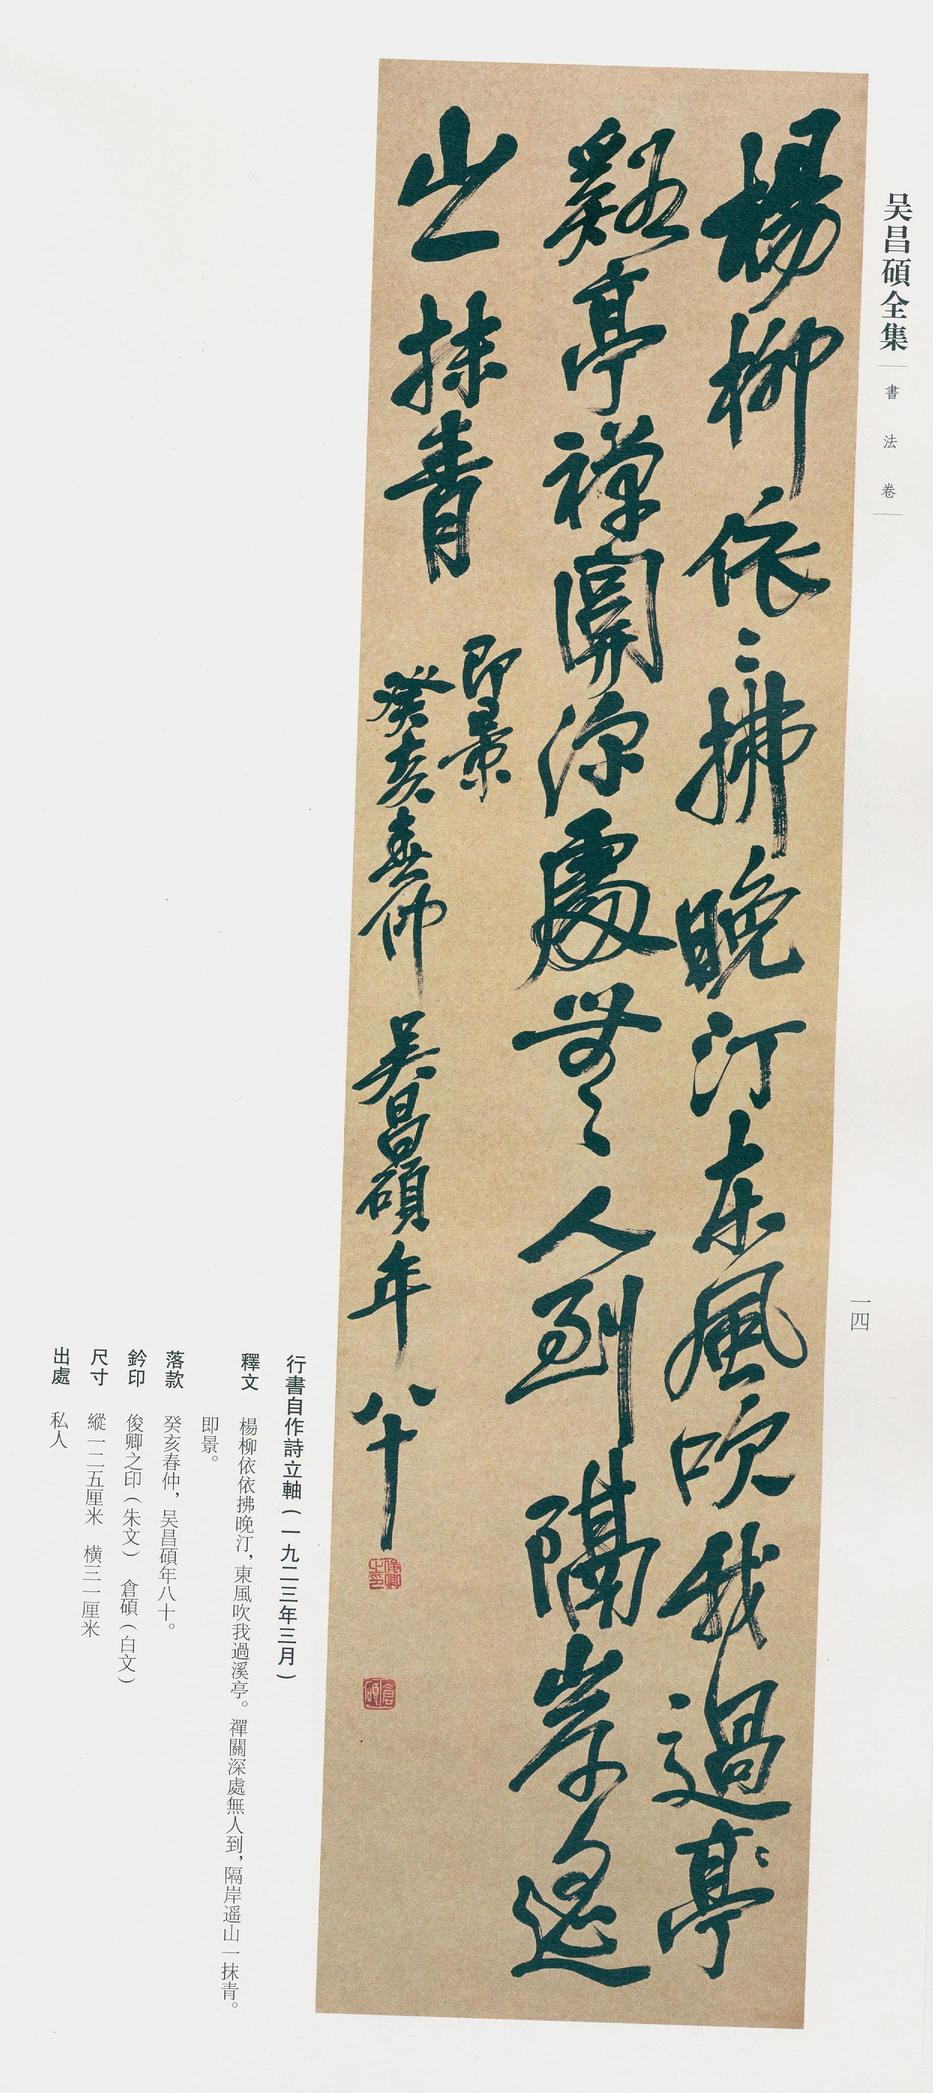 吴昌碩全集
書法卷
一四
楊柳依〻拂晚汀東風吹我過亭〻
谿亭禪關深處無〻人到隔岸遙
山一抹青
即景
癸亥春仲吴昌碩年八十
俊卿之印
倉碩
行書自作詩立軸(一九二三年三月)
釋文 楊柳依依拂晚汀,東風吹我過溪亭。禪關深處無人到,隔岸遥山一抹青。
即景。
落款 癸亥春仲,吴昌碩年八十。
鈐印 俊卿之印(朱文) 倉碩(白文)
尺寸 縱一二五厘米 橫三一厘米
出處 私人